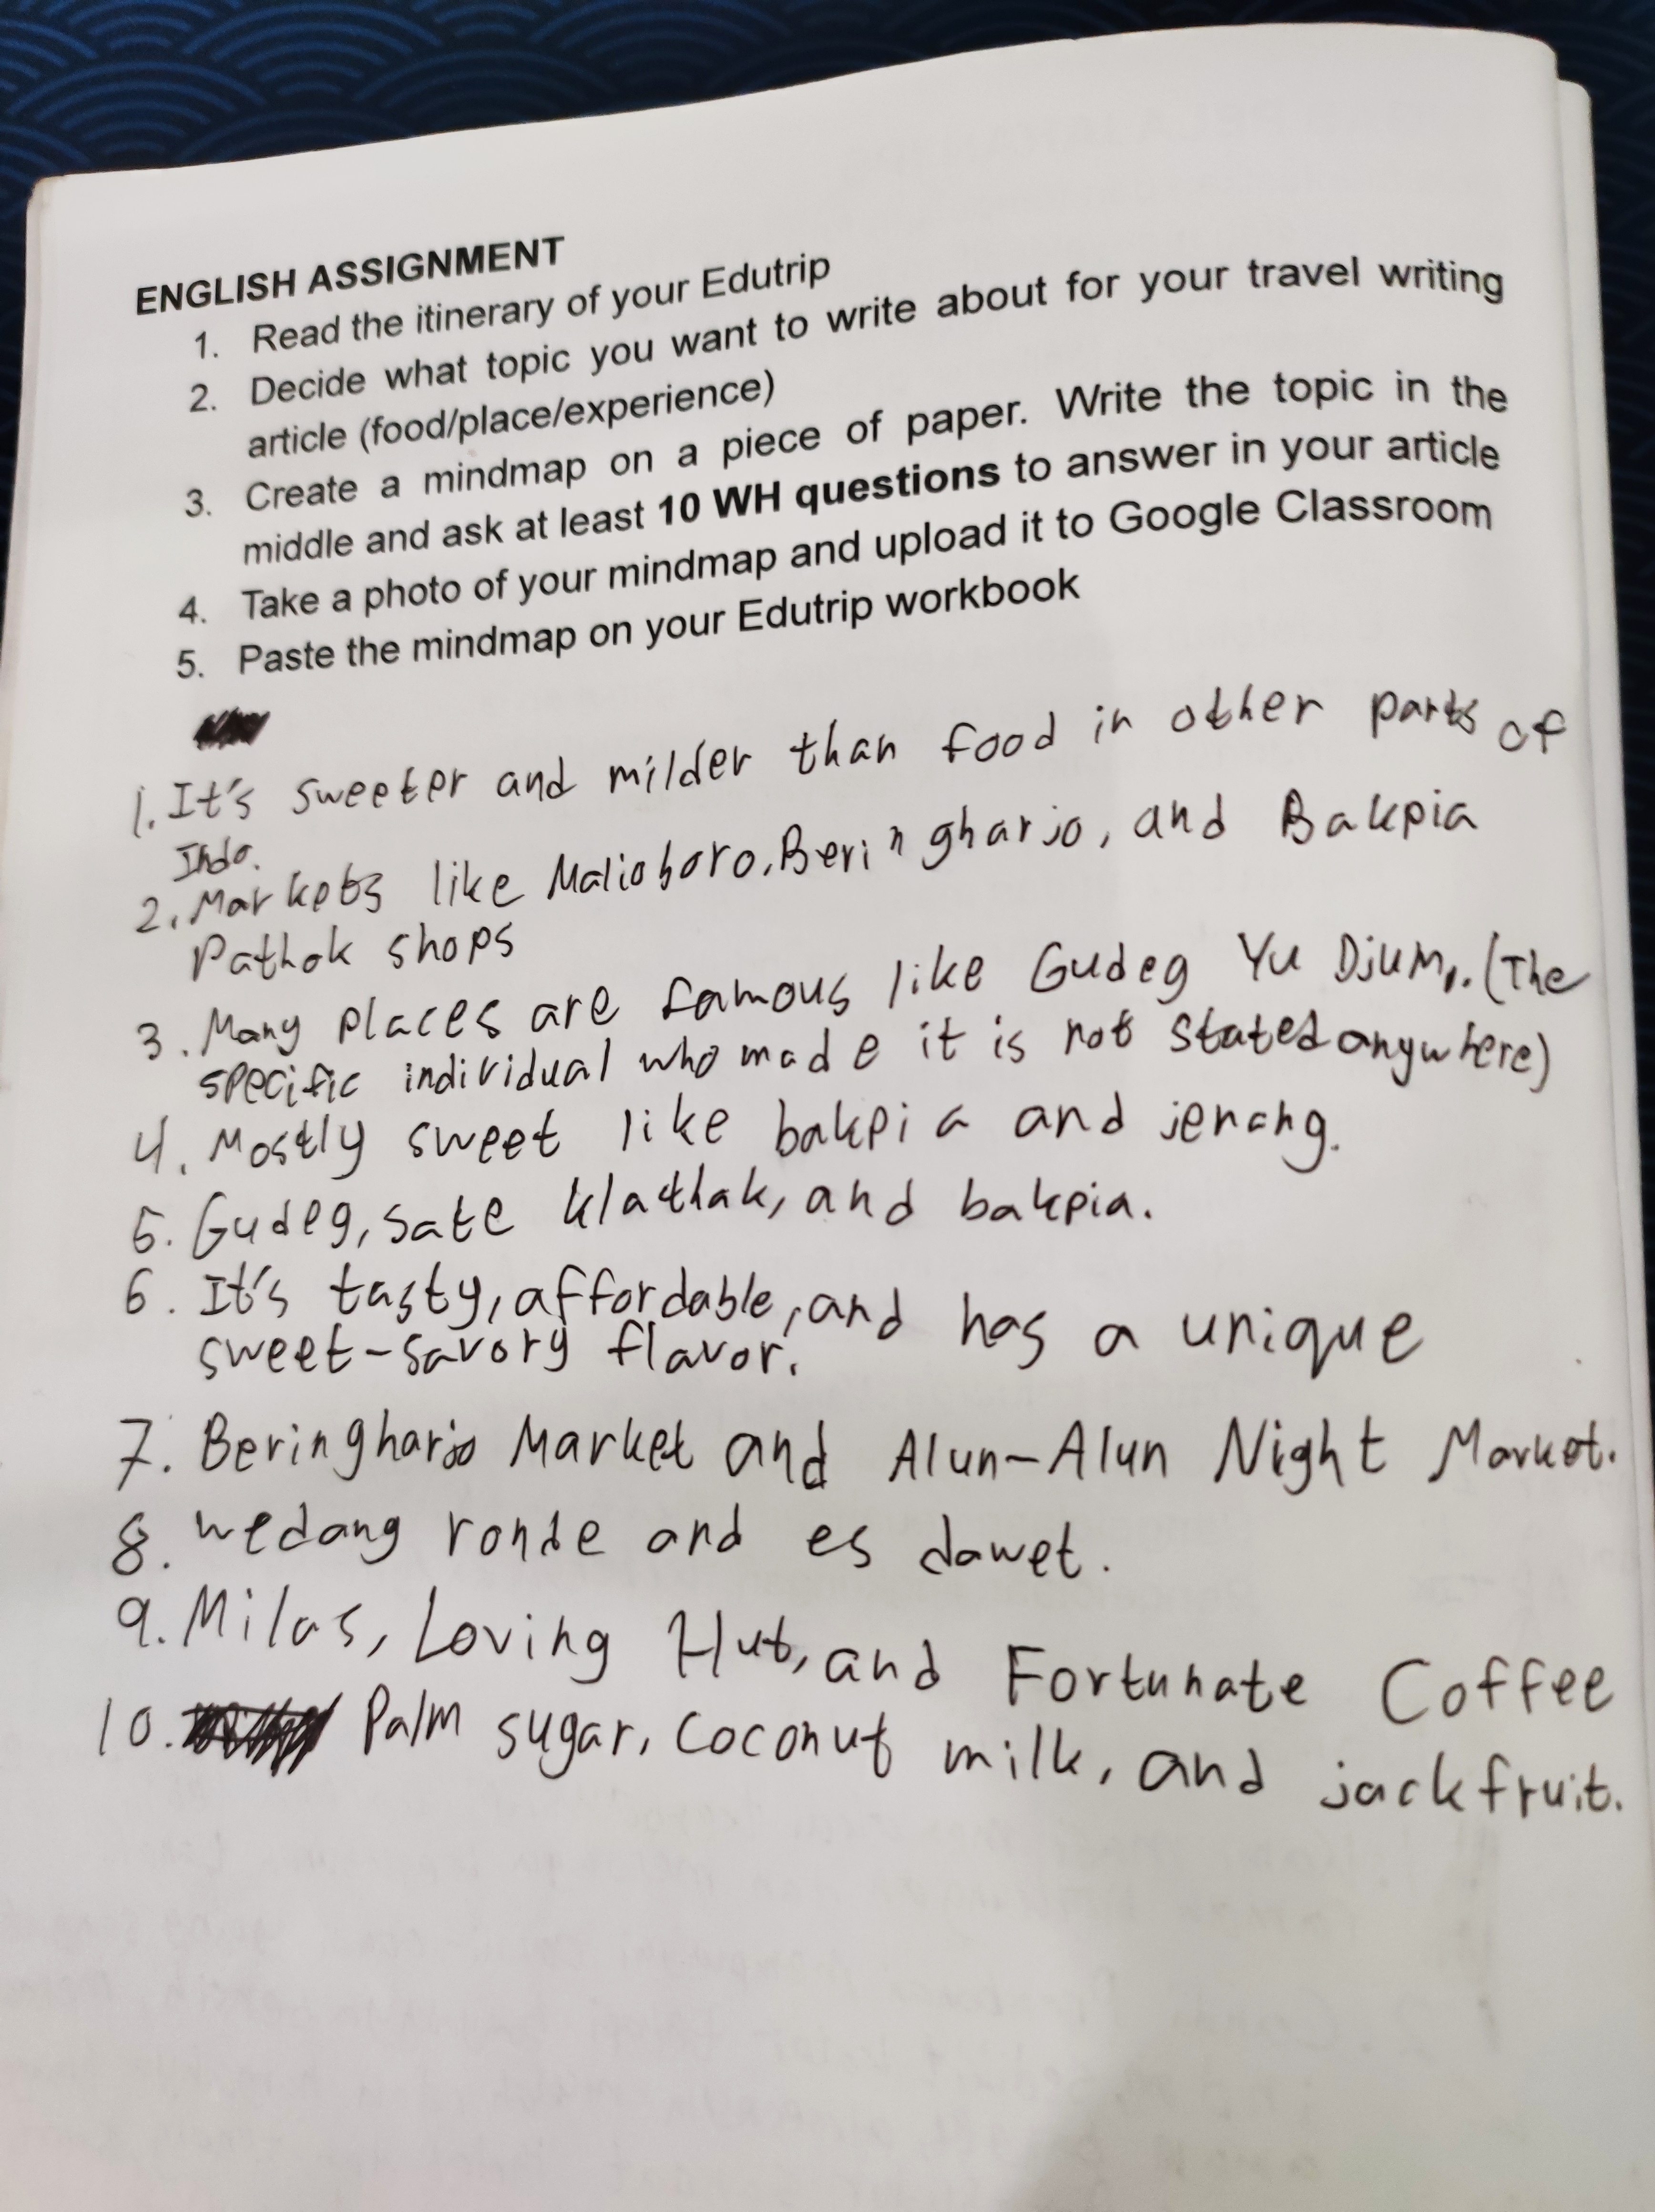 ENGLISH ASSIGNMENT
1. Read the itinerary of your Edutrip
2. Decide what topic you want to write about for your travel writing
article (food/place/experience)
3. Create a mindmap on a piece of paper. Write the topic in the
middle and ask at least 10 WH questions to answer in your article
4. Take a photo of your mindmap and upload it to Google Classroom
5. Paste the mindmap on your Edutrip workbook
1. It's sweeter and milder than food in other parts of
Indo.
2. Markets like Malioboro, Beringharjo, and Bakpia
Pathok shops
3. Many places are famous like Gudeg Yu Djum,. (The
specific individual who made it is not stated anywhere)
4. Mostly sweet like bakpia and jenang.
5. Gudeg, sate klathak, and bakpia.
6. It's tasty, affordable, and has a unique
sweet-savory flavor.
7. Beringharjo Market and Alun-Alun Night Market.
8. wedang ronde and es dawet.
9. Milas, Loving Hut, and Fortunate Coffee
10. Palm sugar, coconut milk, and jackfruit.